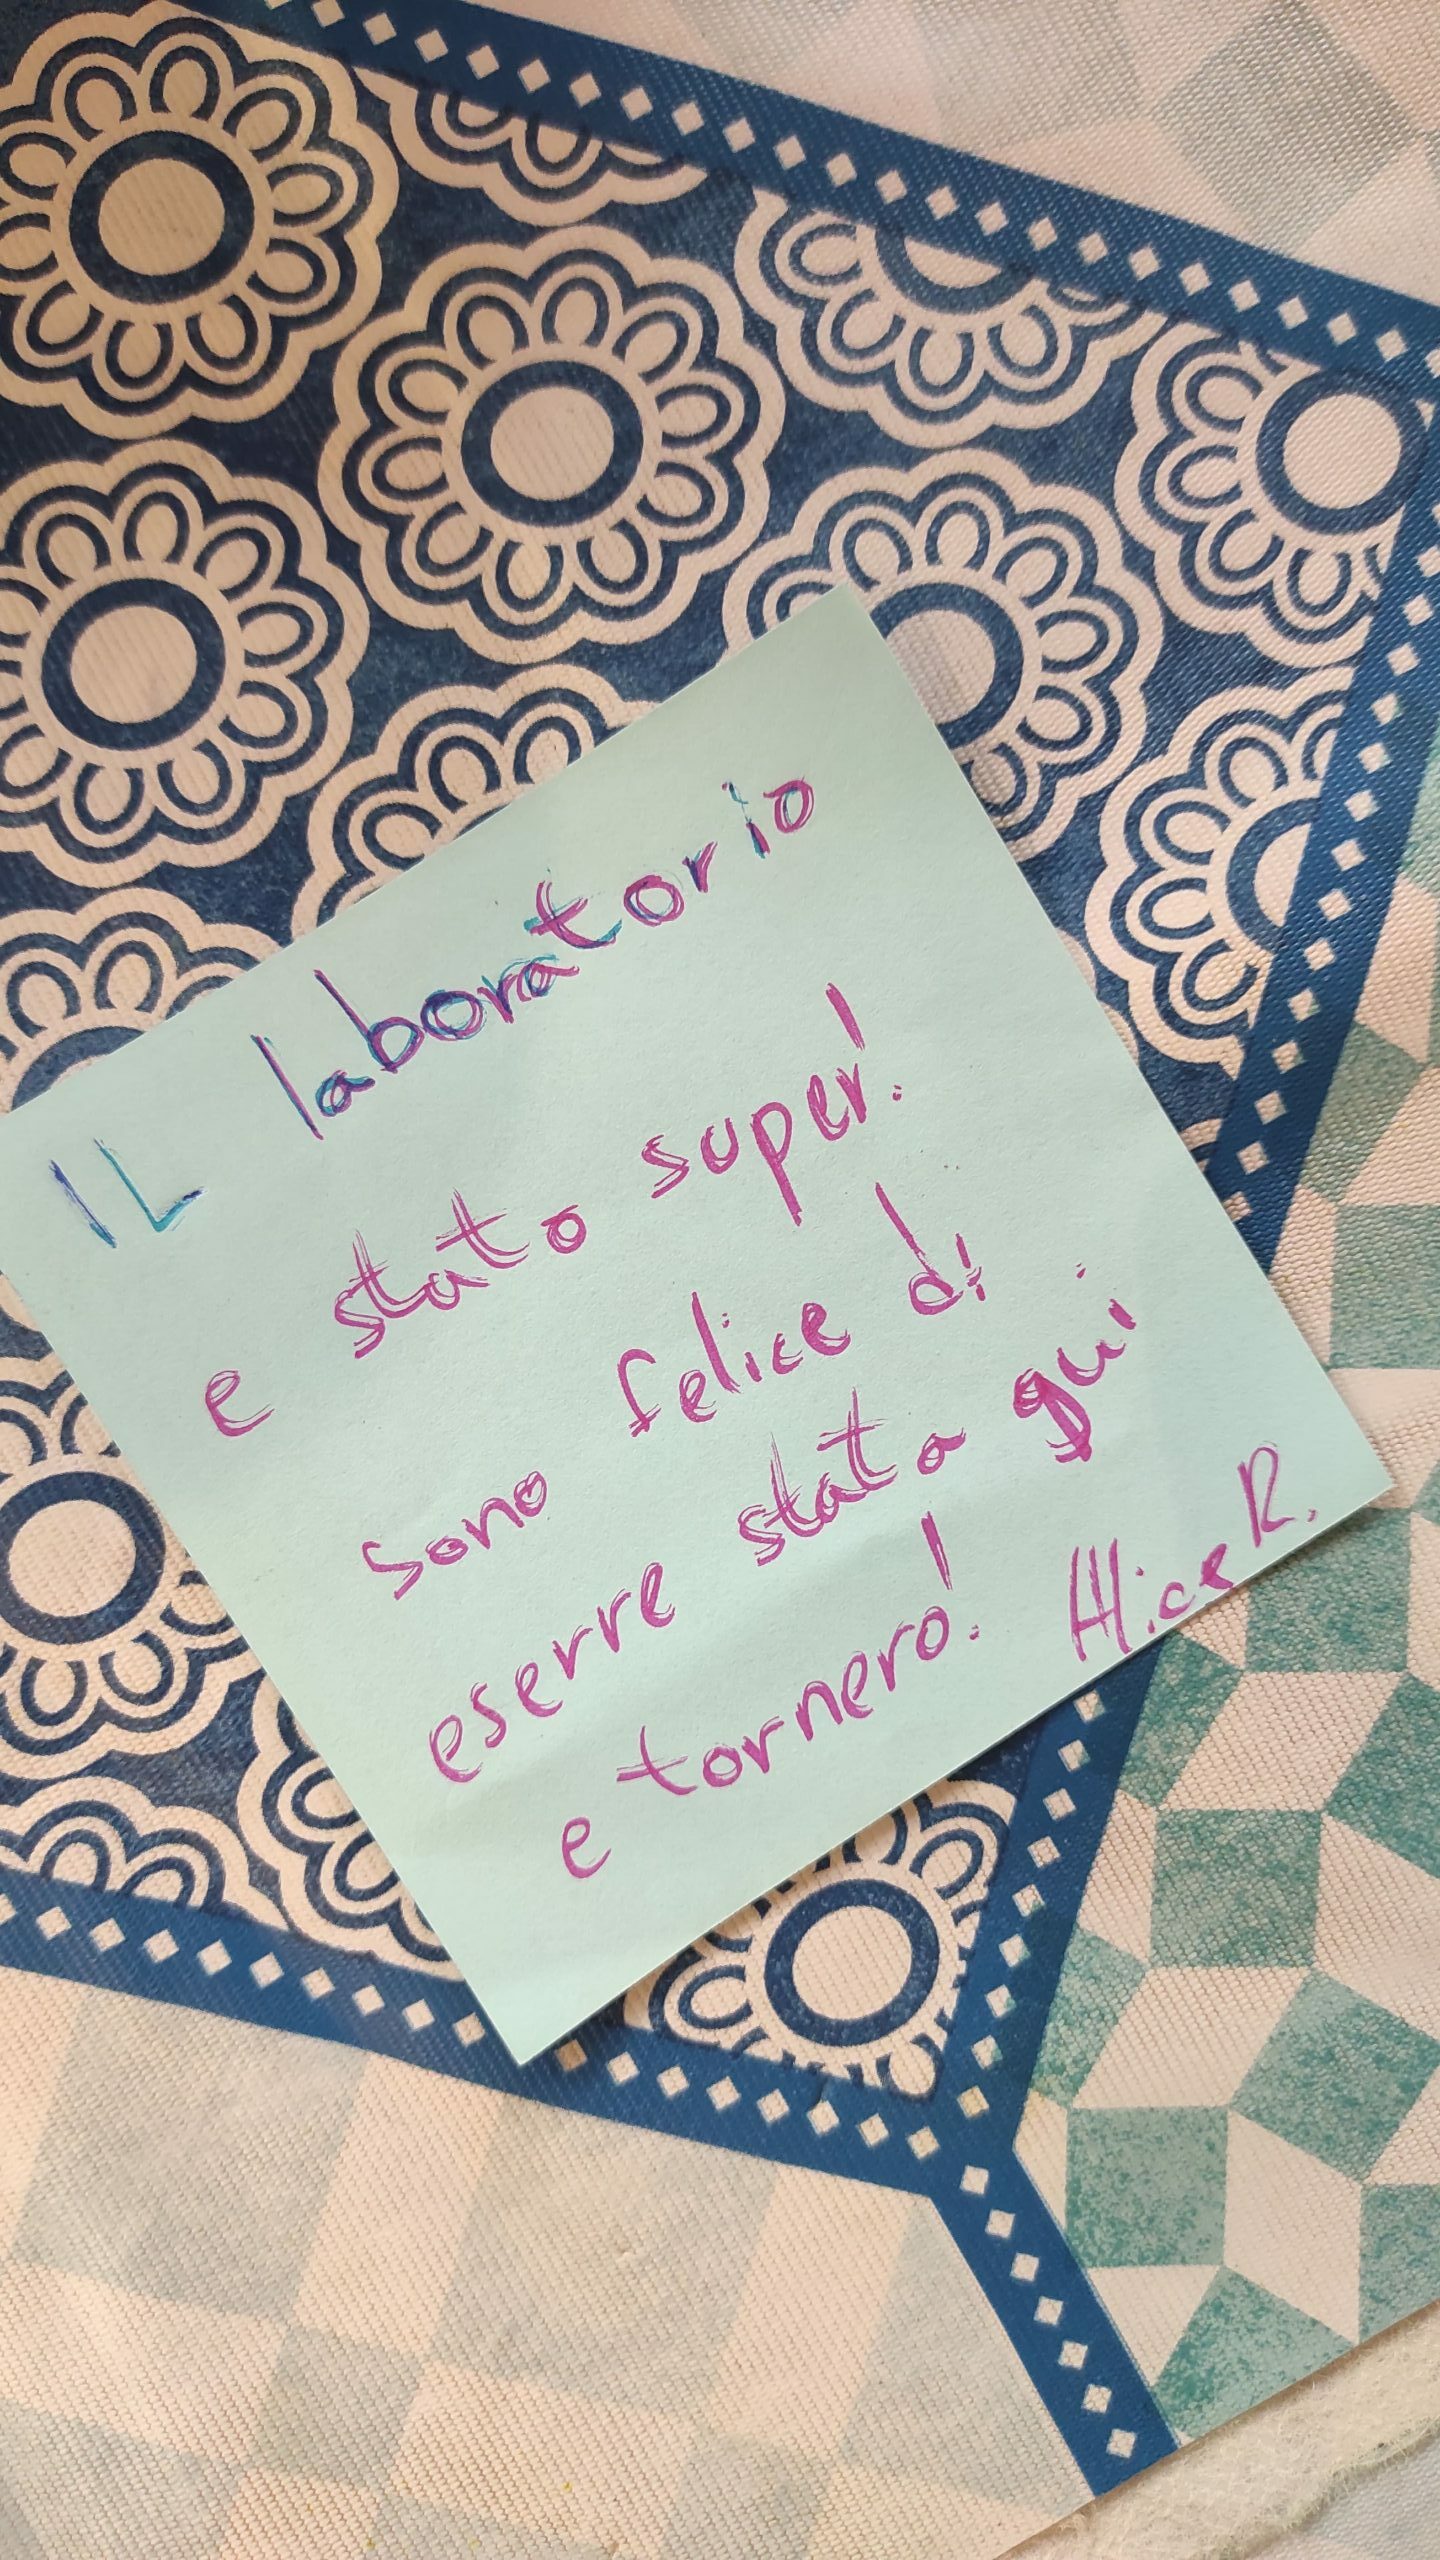 IL laboratorio
e stato super!
sono felice di
eserre stata qui
e tornero! Alice R.